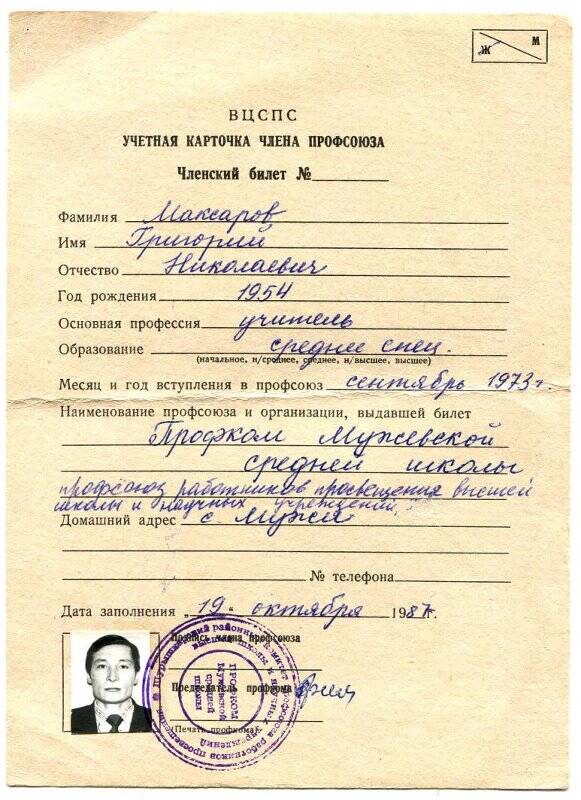 Ж М
ВЦСПС
УЧЕТНАЯ КАРТОЧКА ЧЛЕНА ПРОФСОЮЗА
Членский билет №
Фамилия Максаров
Имя Григорий
Отчество Николаевич
Год рождения 1954
Основная профессия учитель
Образование среднее спец.
(начальное, н/среднее, среднее, н/высшее, высшее)
Месяц и год вступления в профсоюз сентябрь 1973 г.
Наименование профсоюза и организации, выдавшей билет
Профком Мужевской
средней школы
профсоюз работников просвещения высшей
школы и научных учреждений.
Домашний адрес с. Мужи
№ телефона
Дата заполнения „19" октября 1987г.
Подпись члена профсоюза
Председатель профкома
(Печать профкома)
Шурышкарский районный комитет профсоюза работников просвещения
высшей школы и научных учреждений
ПРОФКОМ
Мужевской
средней
школы